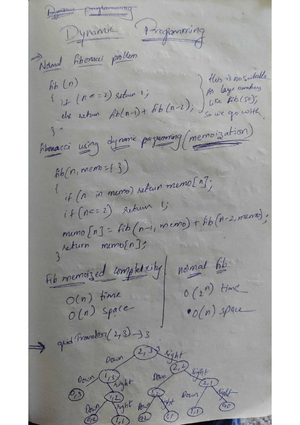 Dynamic programming
Dynamic Programming
Normal fibonacci problem
fib(n)
{ if (n <= 2) return 1;
else return fib(n-1) + fib(n-2);
}
this is not suitable
for large numbers
like fib(50);
so we go with
fibonacci using dynamic programming (memoization)
fib(n, memo={})
{
if (n in memo) return memo[n];
if (n<=2) return 1;
memo[n] = fib(n-1, memo) + fib(n-2, memo);
return memo[n];
}
Fib memoized complexity
O(n) time
O(n) space
normal fib:
O(2^n) time
O(n) space
gridTraveler(2,3) → 3
2,3
Down Right
1,3 2,2
Down Right Down Right
0,3 1,2 1,2 2,1
Down Right Down Right Down Right
0,2 1,1 0,2 1,1 1,1 2,0